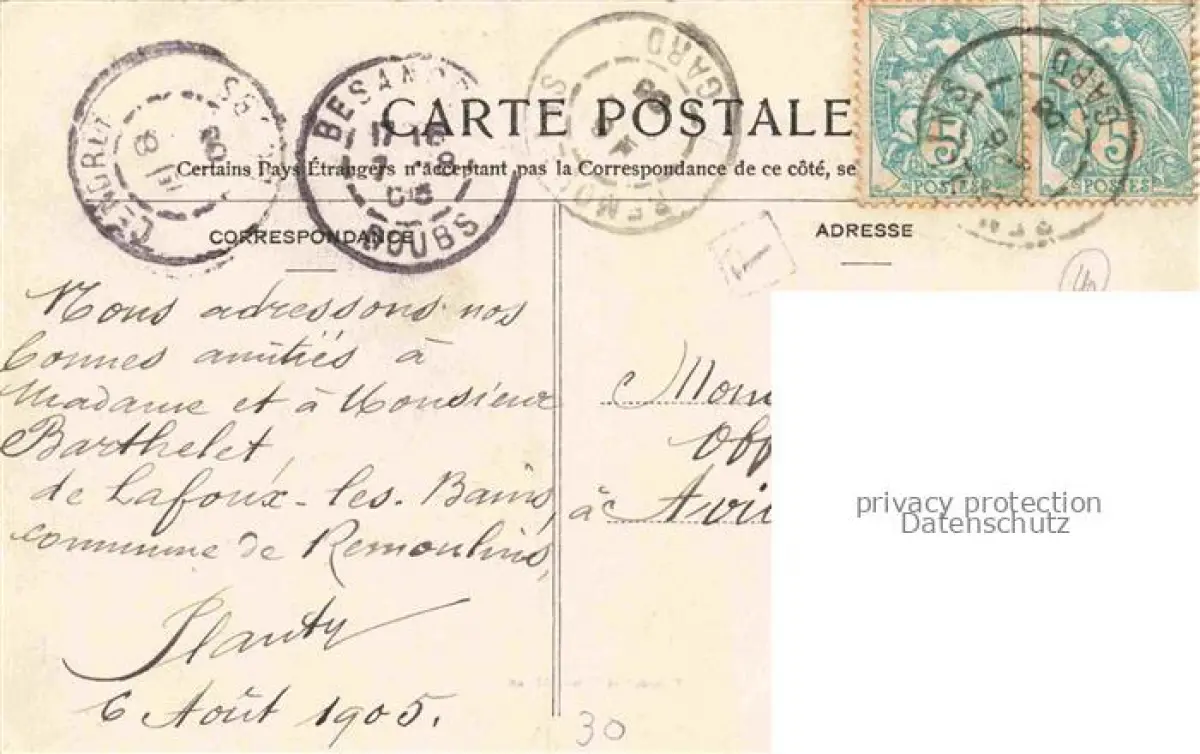 CARTE POSTALE
Certains Pays Étrangers n'acceptent pas la Correspondance de ce côté, se
CORRESPONDANCE
ADRESSE
BESANÇ
DOUBS
GARD
GARD
5 5
POSTES POSTES
Nous adressons nos
bonnes amitiés à
Madame et à Monsieur
Barthelet,
de Lafoux-les-Bains,
commune de Remoulins,
6 Août 1905.
Mon
Off
à Avi
30
privacy protection
Datenschutz